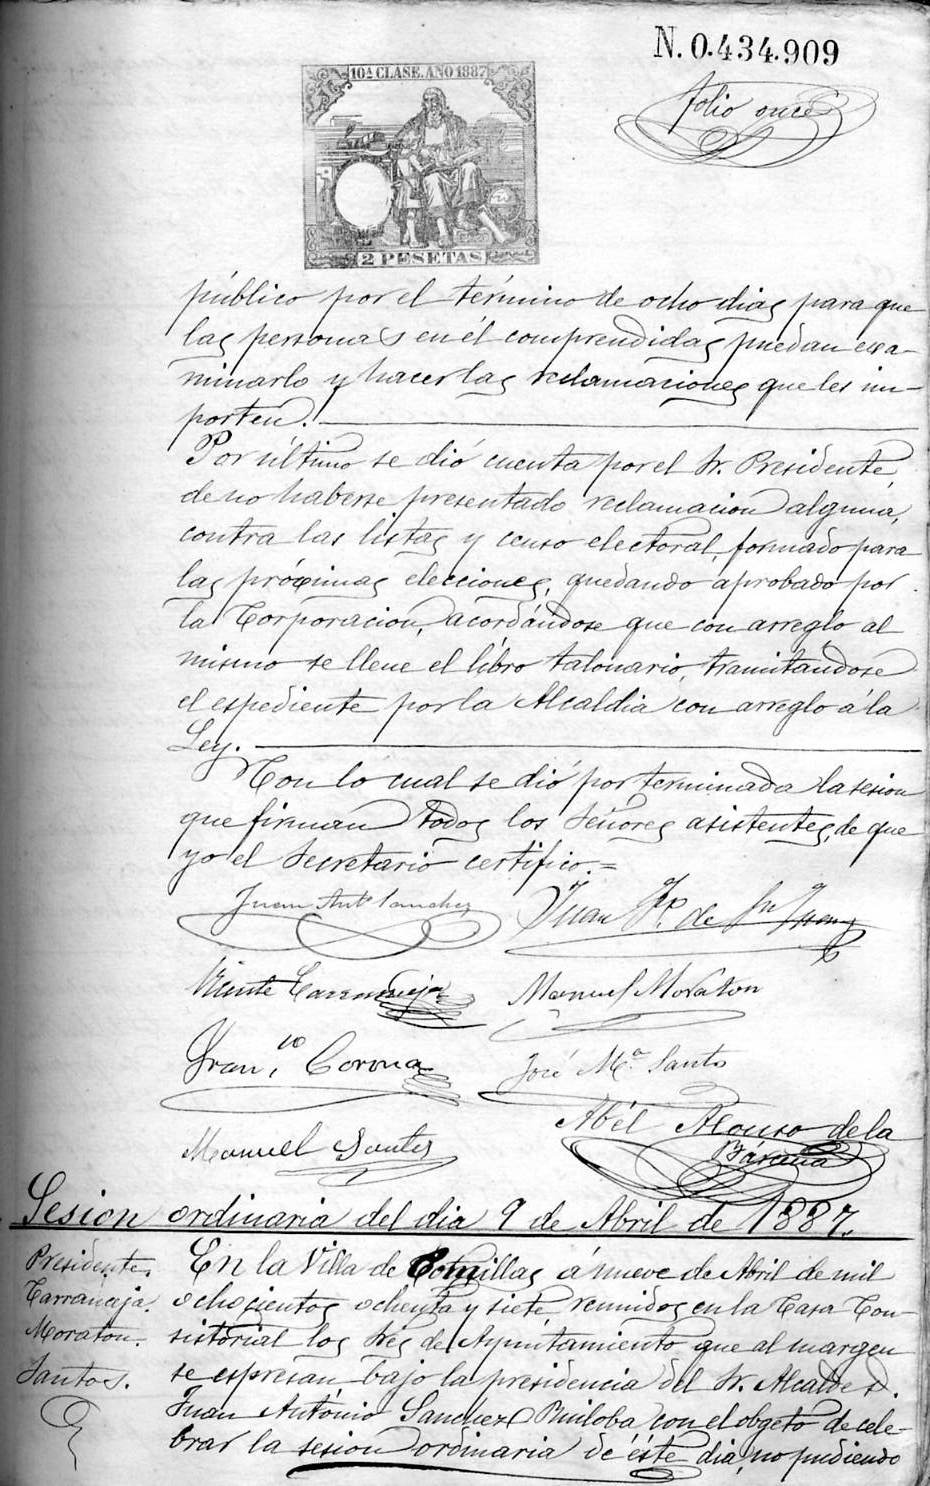 N. 0.434.909
10ª CLASE. AÑO 1887
folio once
2 PESETAS
público por el término de ocho dias para que
las personas en él comprendidas puedan exa-
minarlo y hacer las reclamaciones que les im-
porten.
Por último se dió cuenta por el Sr. Presidente,
de no haberse presentado reclamacion alguna,
contra las listas y censo electoral, formado para
las próximas elecciones, quedando aprobado por
la Corporacion, acordándose que con arreglo al
mismo se llene el libro talonario, tramitandose
el espediente por la Alcaldia con arreglo á la
Ley.
Con lo cual se dió por terminada la sesion
que firman todos los Señores asistentes, de que
yo el Secretario certifico.=
Juan Ant.º Sanchez
Juan
de
Vicente Carranceja
Manuel Moraton
Fran.co Corona
José M.ª Santos
Manuel Santos
Abél Alonso de la
Bárcena
Sesion ordinaria del dia 9 de Abril de 1887.
Presidente.
Carranceja.
Moraton.
Santos.
En la Villa de Comillas á nueve de Abril de mil
ochocientos ochenta y siete, reunidos en la Casa Con-
sistorial los Sres de Ayuntamiento que al margen
se espresan bajo la presidencia del Sr. Alcalde D.
Juan António Sanchez Ruiloba con el obgeto de cele-
brar la sesion ordinaria de éste dia, no pudiendo